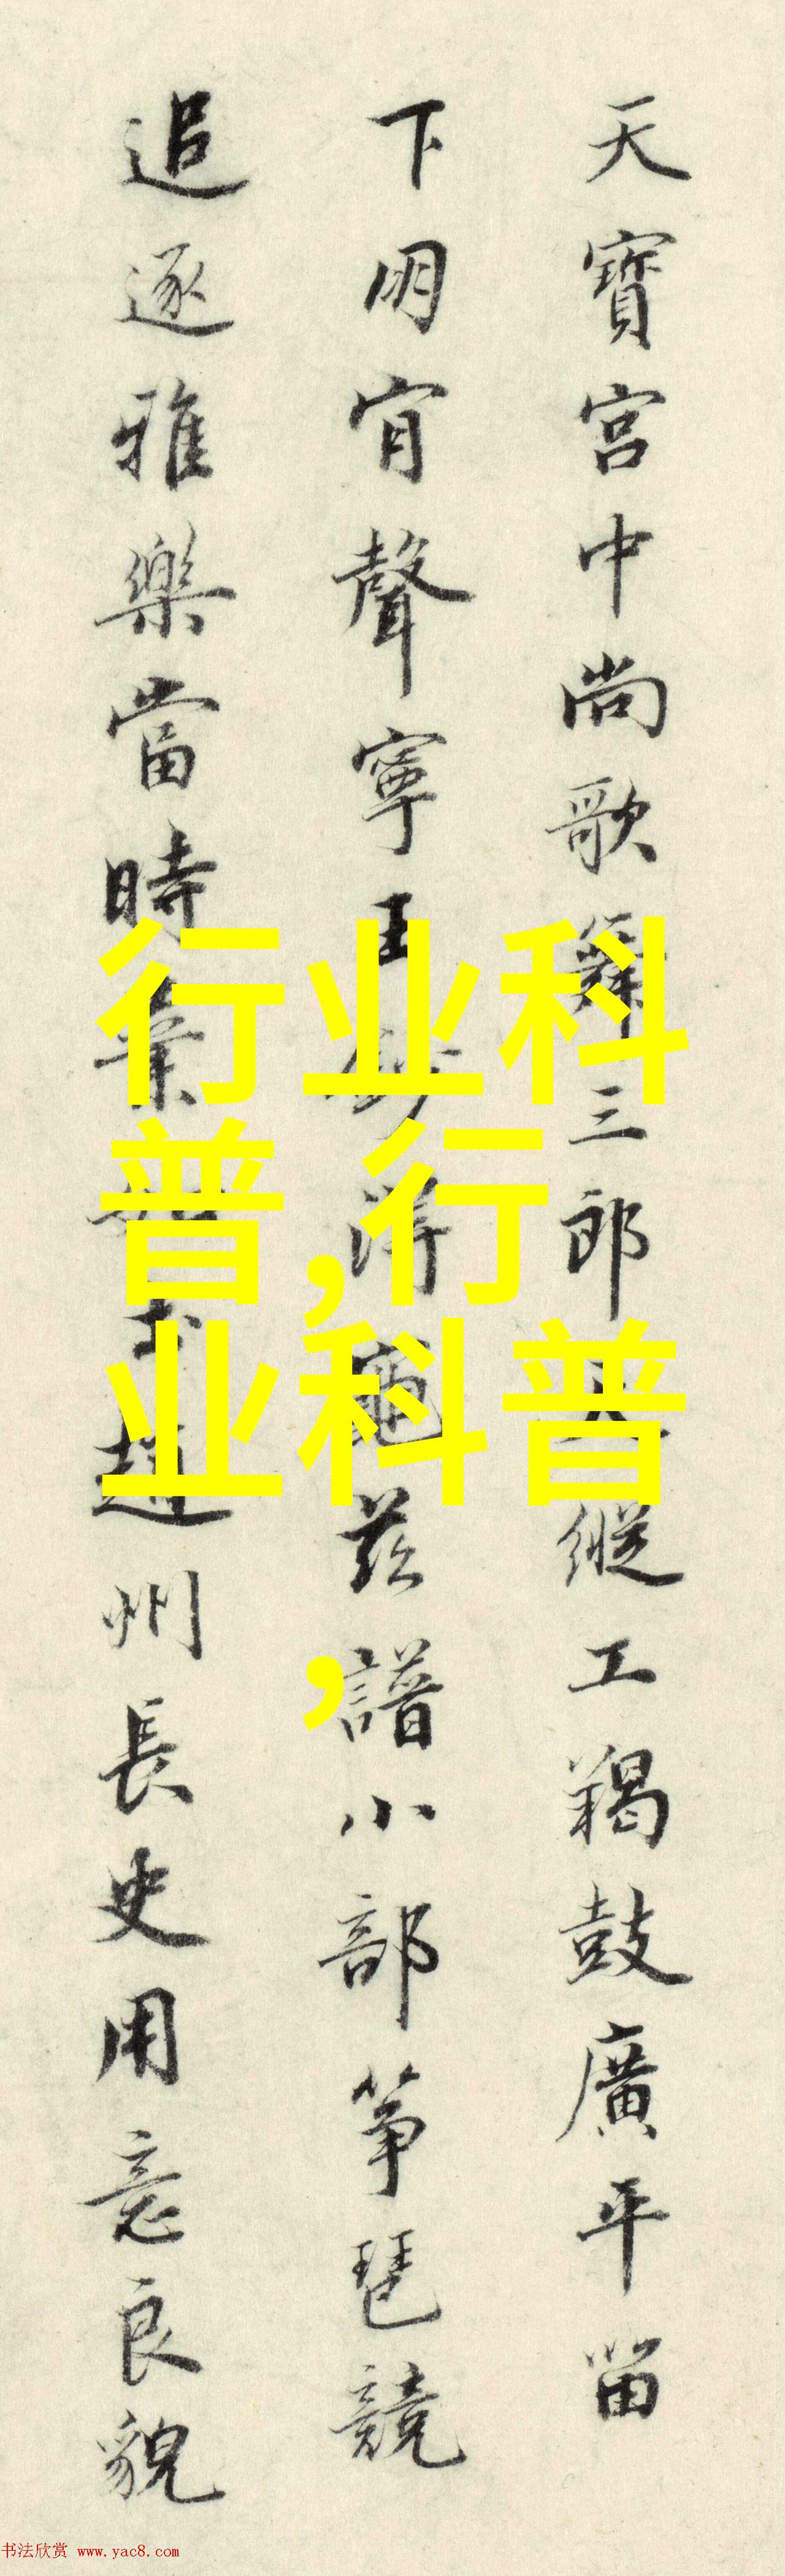 天寶宮中尚歌舞三郎天縱工羯鼓廣平留
下朙宵聲寧王妙得龜茲譜小部箏琶競
追逐雅樂當時棄如土趙州長史用意良貌
行业科
普,行
业科普
,
书法欣赏 www.yac8.com